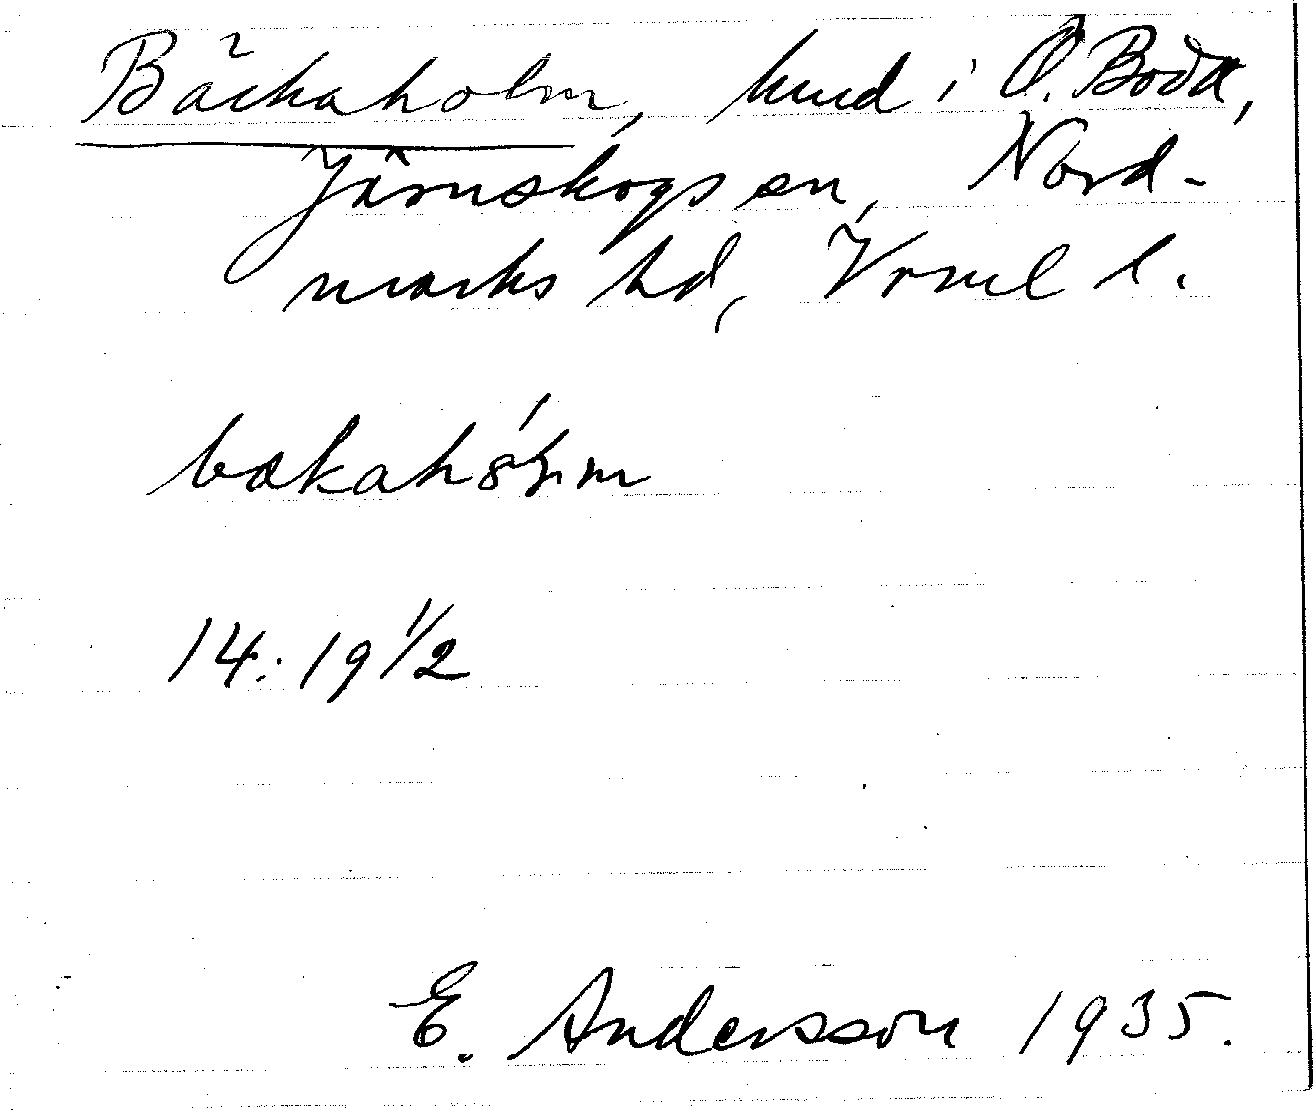 Bäckaholm, lund i Ö. Boda,
Järnskogs sn, Nord-
marks hd, Vrml l.
bækahólm
14: 19 1/2
E. Andersson 1935.